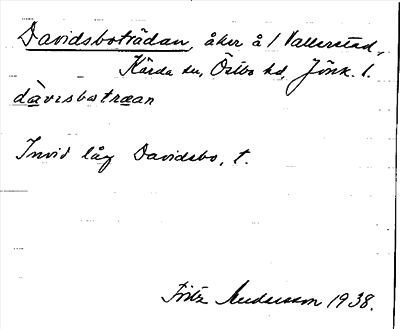 Davidsboträdan, åker å / Vallerstad,
Kärda sn, Östbo hd, Jönk. l.
dàvısbotræan
Invid låg Davidsbo, t.
Fritz Andersson 1938.